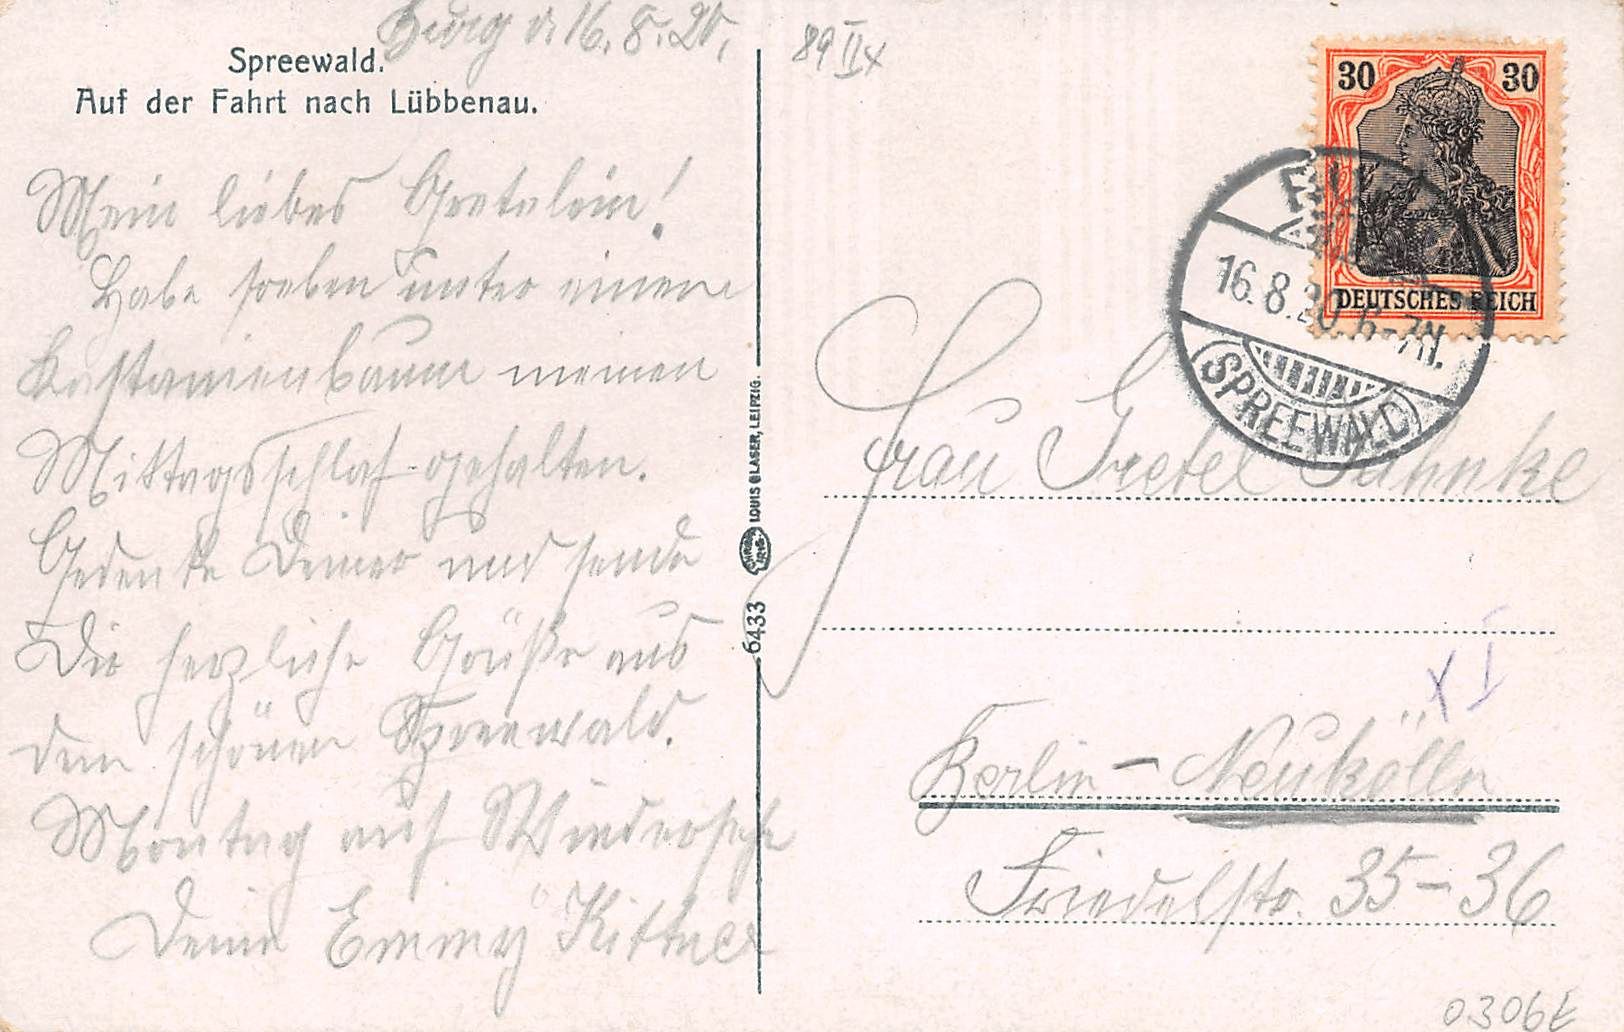 Burg d. 16. 8. 20.
Spreewald.
Auf der Fahrt nach Lübbenau.
Mein liebes Gretelein!
Habe soeben unter einem
Kastanienbaum meinen
Mittagsschlaf gehalten.
Gedenke Deiner und sende
Dir herzliche Grüße aus
dem schönen Spreewald.
Montag auf Wiedersehn
Deine Emmy Kittner
LOUIS GLASER, LEIPZIG.
6433
89 II x
30 30
DEUTSCHES REICH
16.8.20. 6-7N.
SPREEWALD
Frau Gretel Jahnke
X I
Berlin - Neukölln
Friedelstr. 35-36
0306